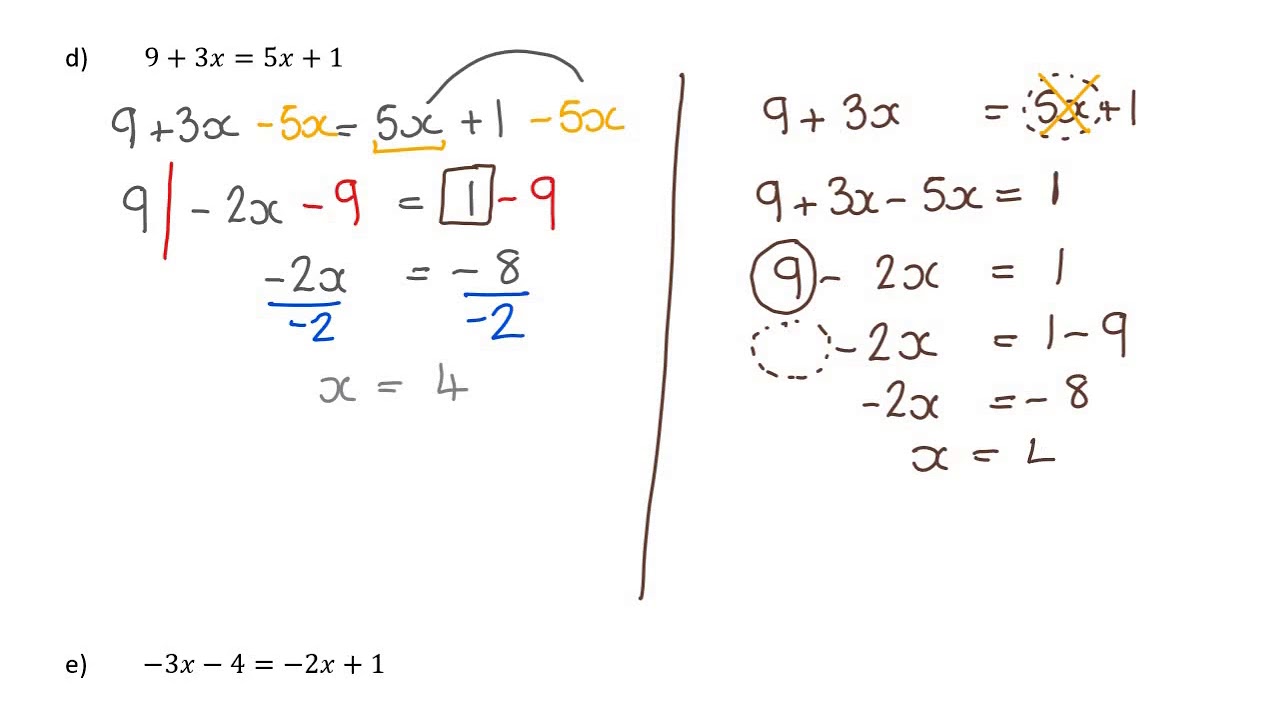 d) 9 + 3x = 5x + 1
9 + 3x - 5x = 5x + 1 - 5x
9 - 2x - 9 = 1 - 9
-2x = - 8
-2 -2
x = 4
9 + 3x = 5x + 1
9 + 3x - 5x = 1
9 - 2x = 1
- 2x = 1 - 9
-2x = - 8
x =
e) −3x − 4 = −2x + 1